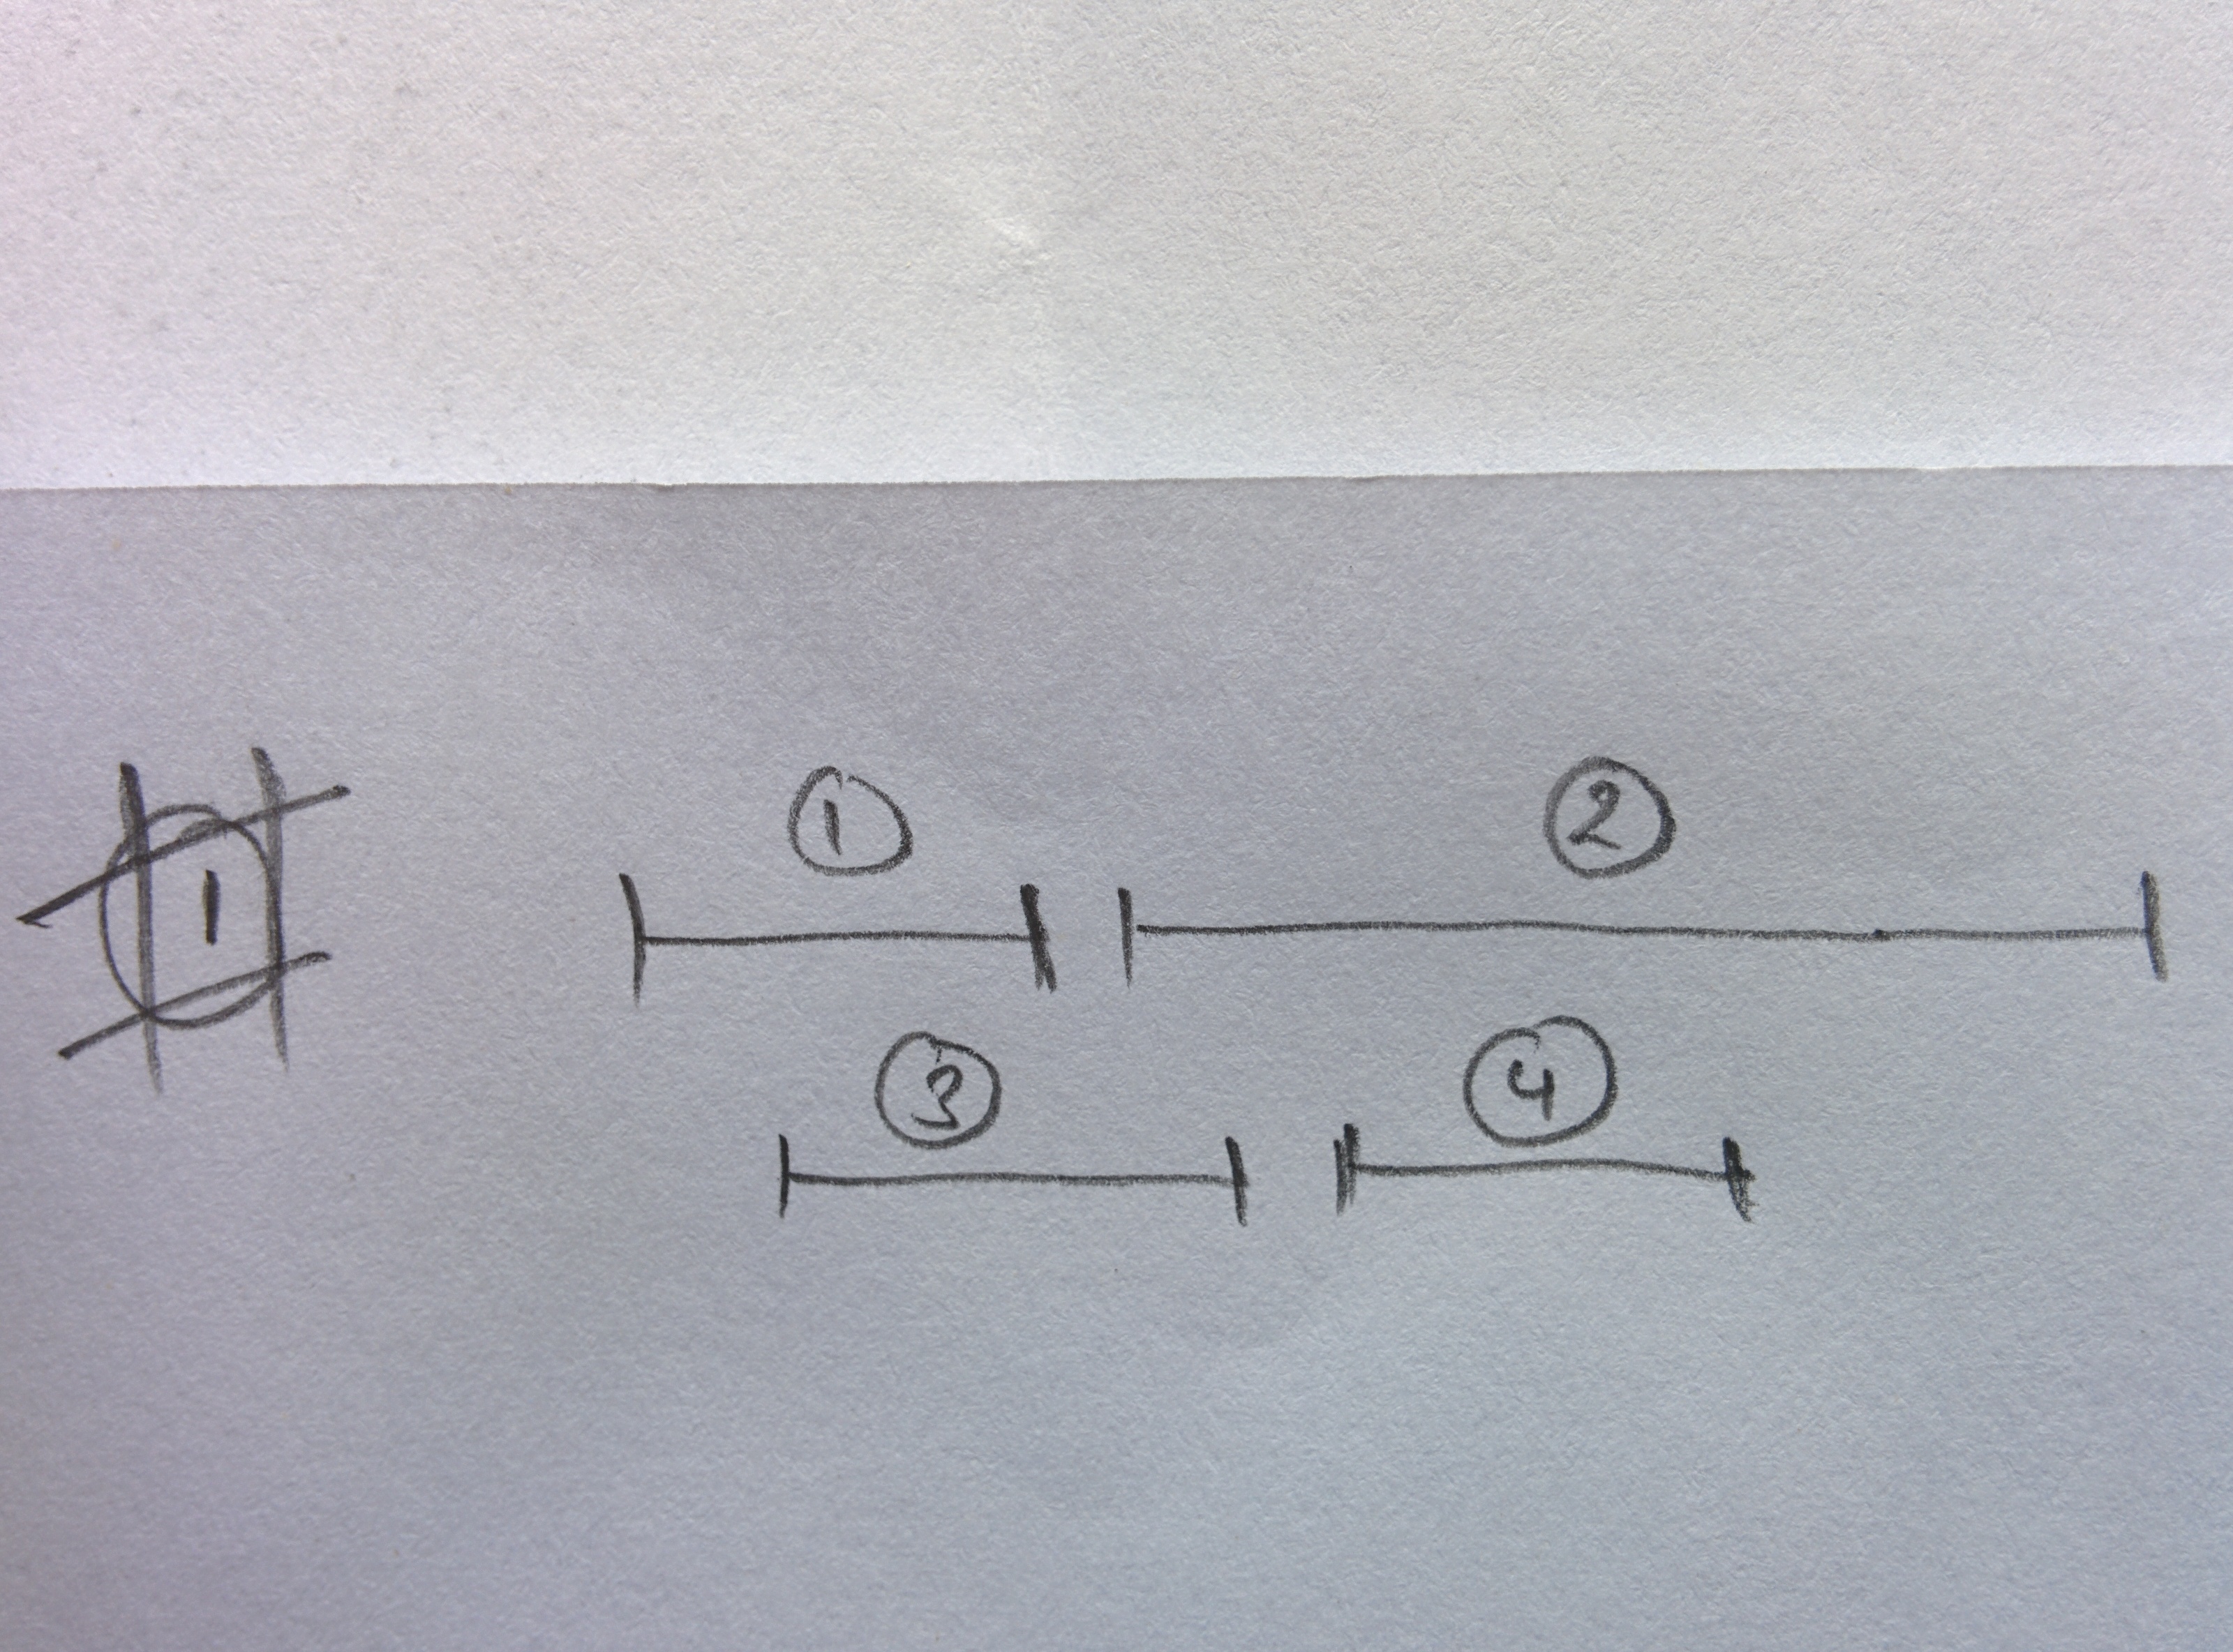 #1
① ②
③ ④